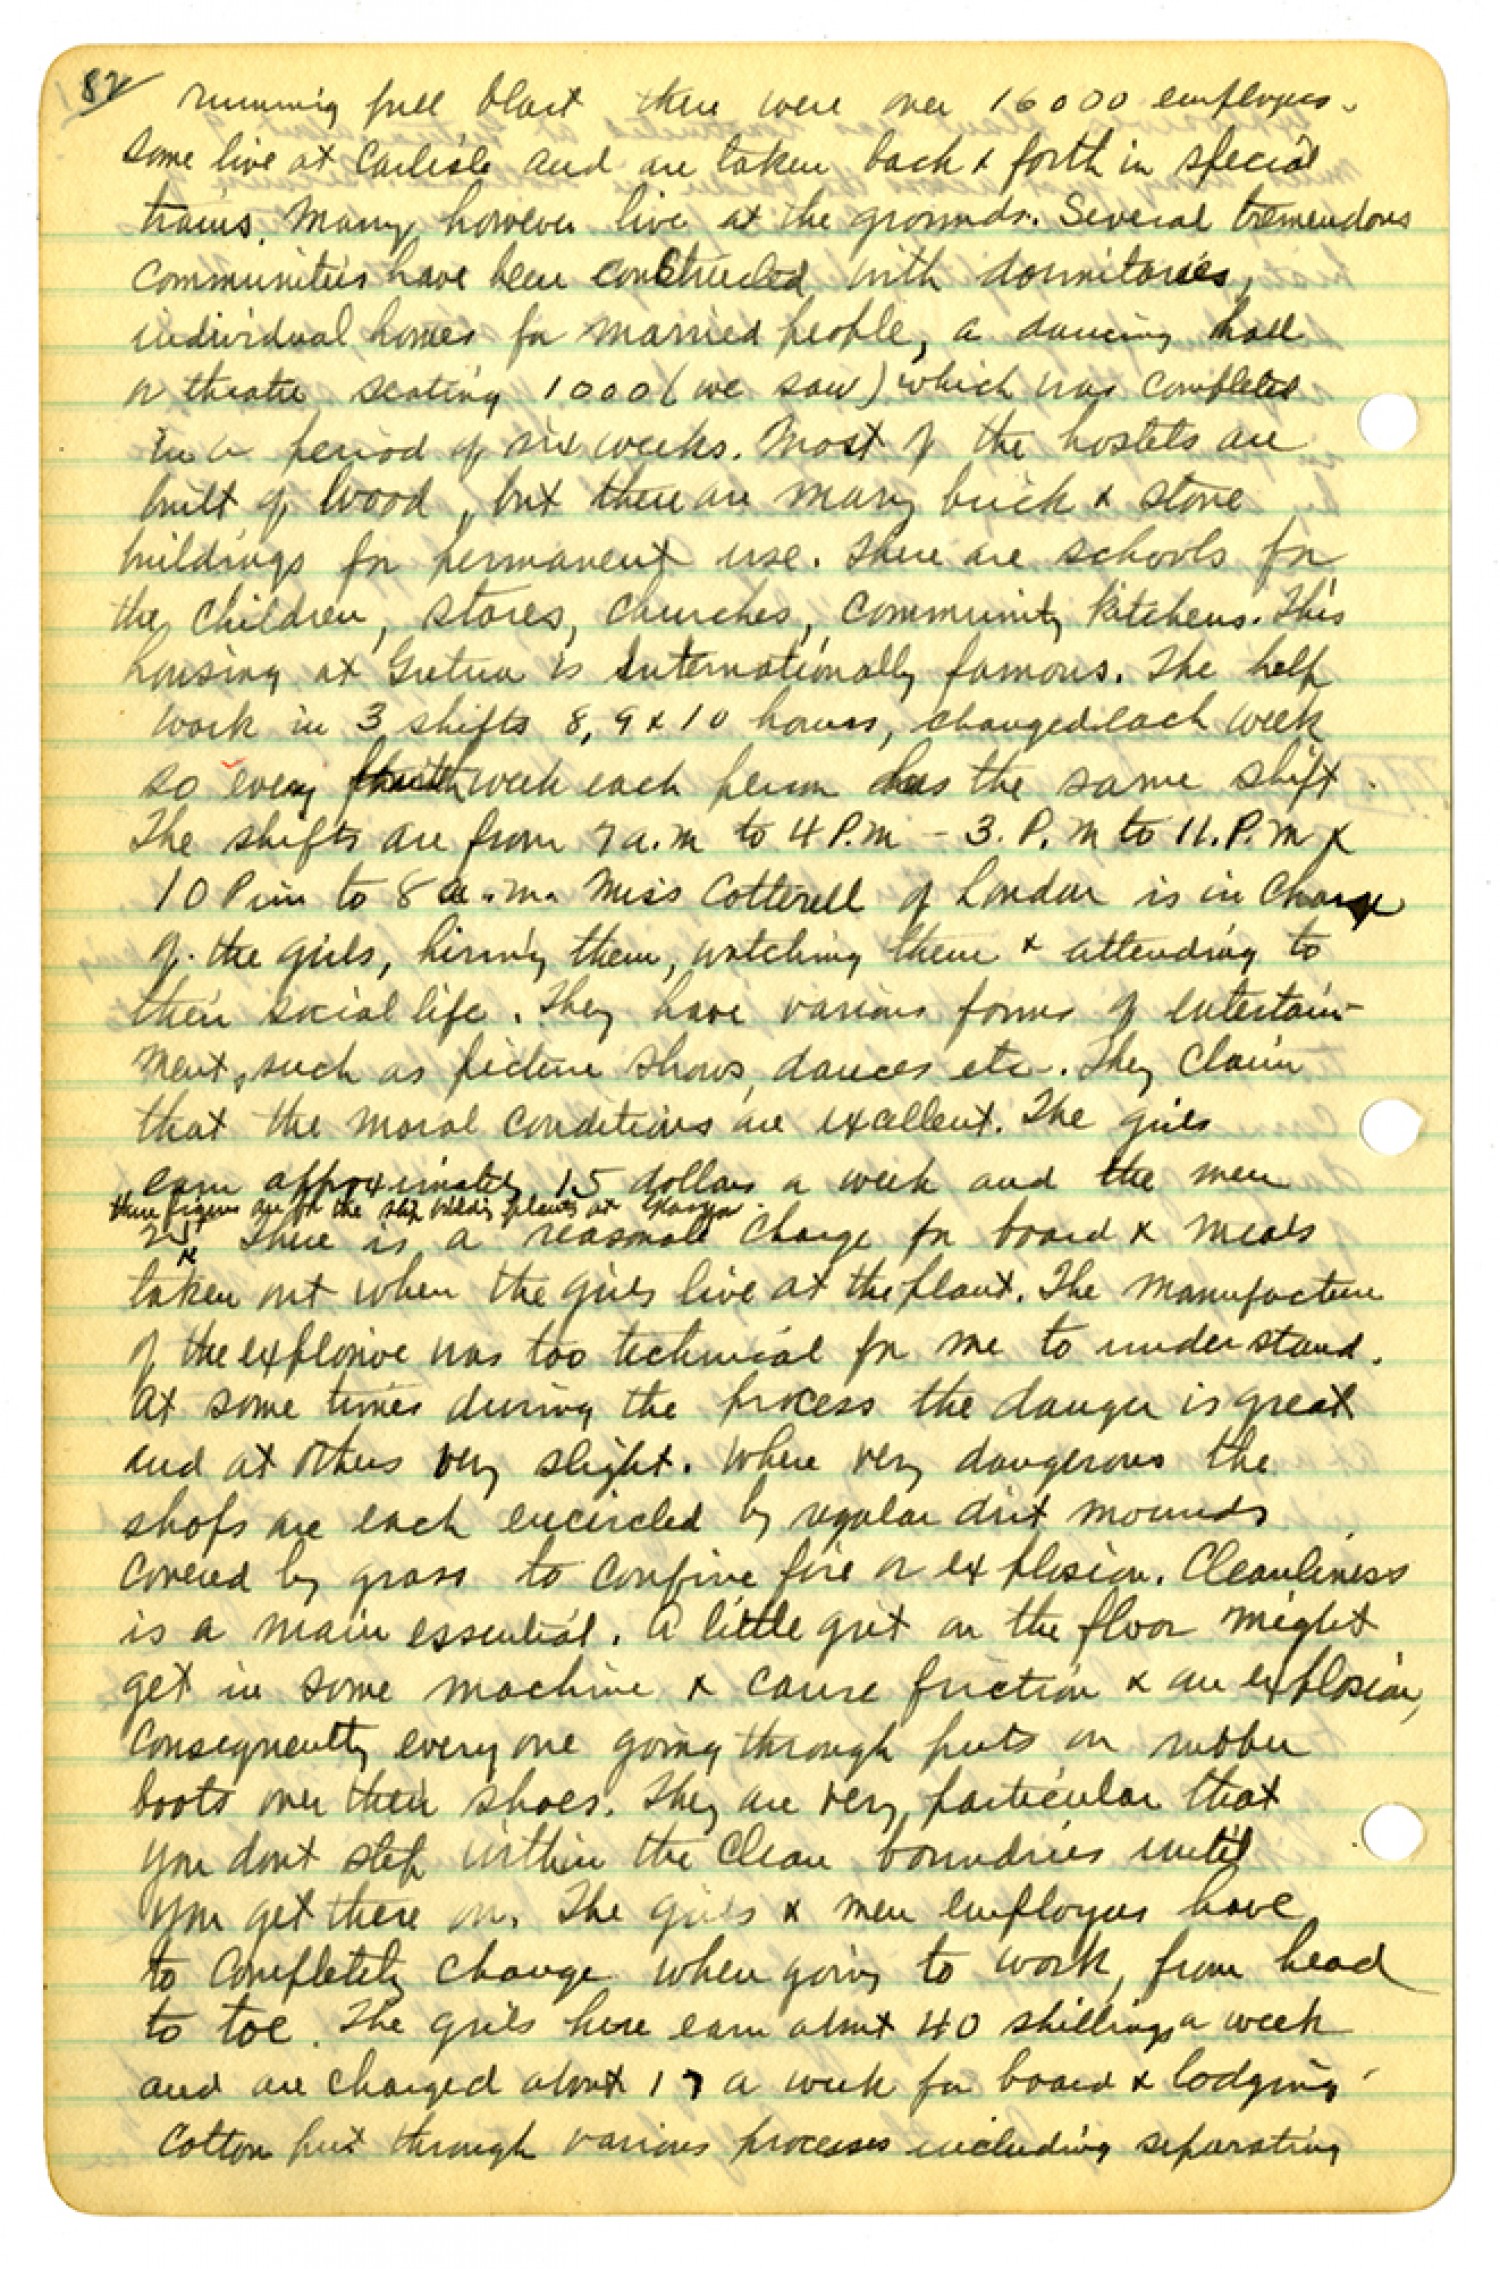 82
running full blast there were over 16000 employees.
Some live at Carlisle and are taken back & forth in special
trains. Many however live at the grounds. Several tremendous
communities have been constructed with dormitories,
individual homes for married people, a dancing hall
or theatre seating 1000 (we saw) which was completed
in a period of six weeks. Most of the hostels are
built of wood, but there are many brick & stone
buildings for permanent use. There are schools for
the children, stores, churches, community kitchens. This
housing at Gretna is Internationally famous. The help
work in 3 shifts 8, 9 & 10 hours, changed each week
so every fourth week each person has the same shift.
The shifts are from 7 a.m to 4 P.m - 3. P. m to 11. P. m &
10 P m to 8 a.m. Miss Cotterell of London is in charge
of the girls, hiring them, watching them & attending to
their social life. They have various forms of entertain-
ment, such as picture shows, dances etc. They claim
that the moral conditions are excellent. The girls
earn approximately 15 dollars a week and the men
these figures are for the plants at
25 x There is a reasonable charge for board & meals
taken out when the girls live at the plant. The manufacture
of the explosive was too technical for me to understand.
At some times during the process the danger is great
and at others very slight. Where very dangerous the
shops are each encircled by regular dirt mounds
covered by grass to confine fire or explosion. Cleanliness
is a main essential. A little grit on the floor might
get in some machine & cause friction & an explosion,
consequently every one going through puts on rubber
boots over their shoes. They are very particular that
you dont step within the clean boundries until
you get these on. The girls & men employees have
to completely change when going to work, from head
to toe. The girls here earn about 40 shillings a week
and are charged about 17 a week for board & lodging.
Cotton put through various processes including separating